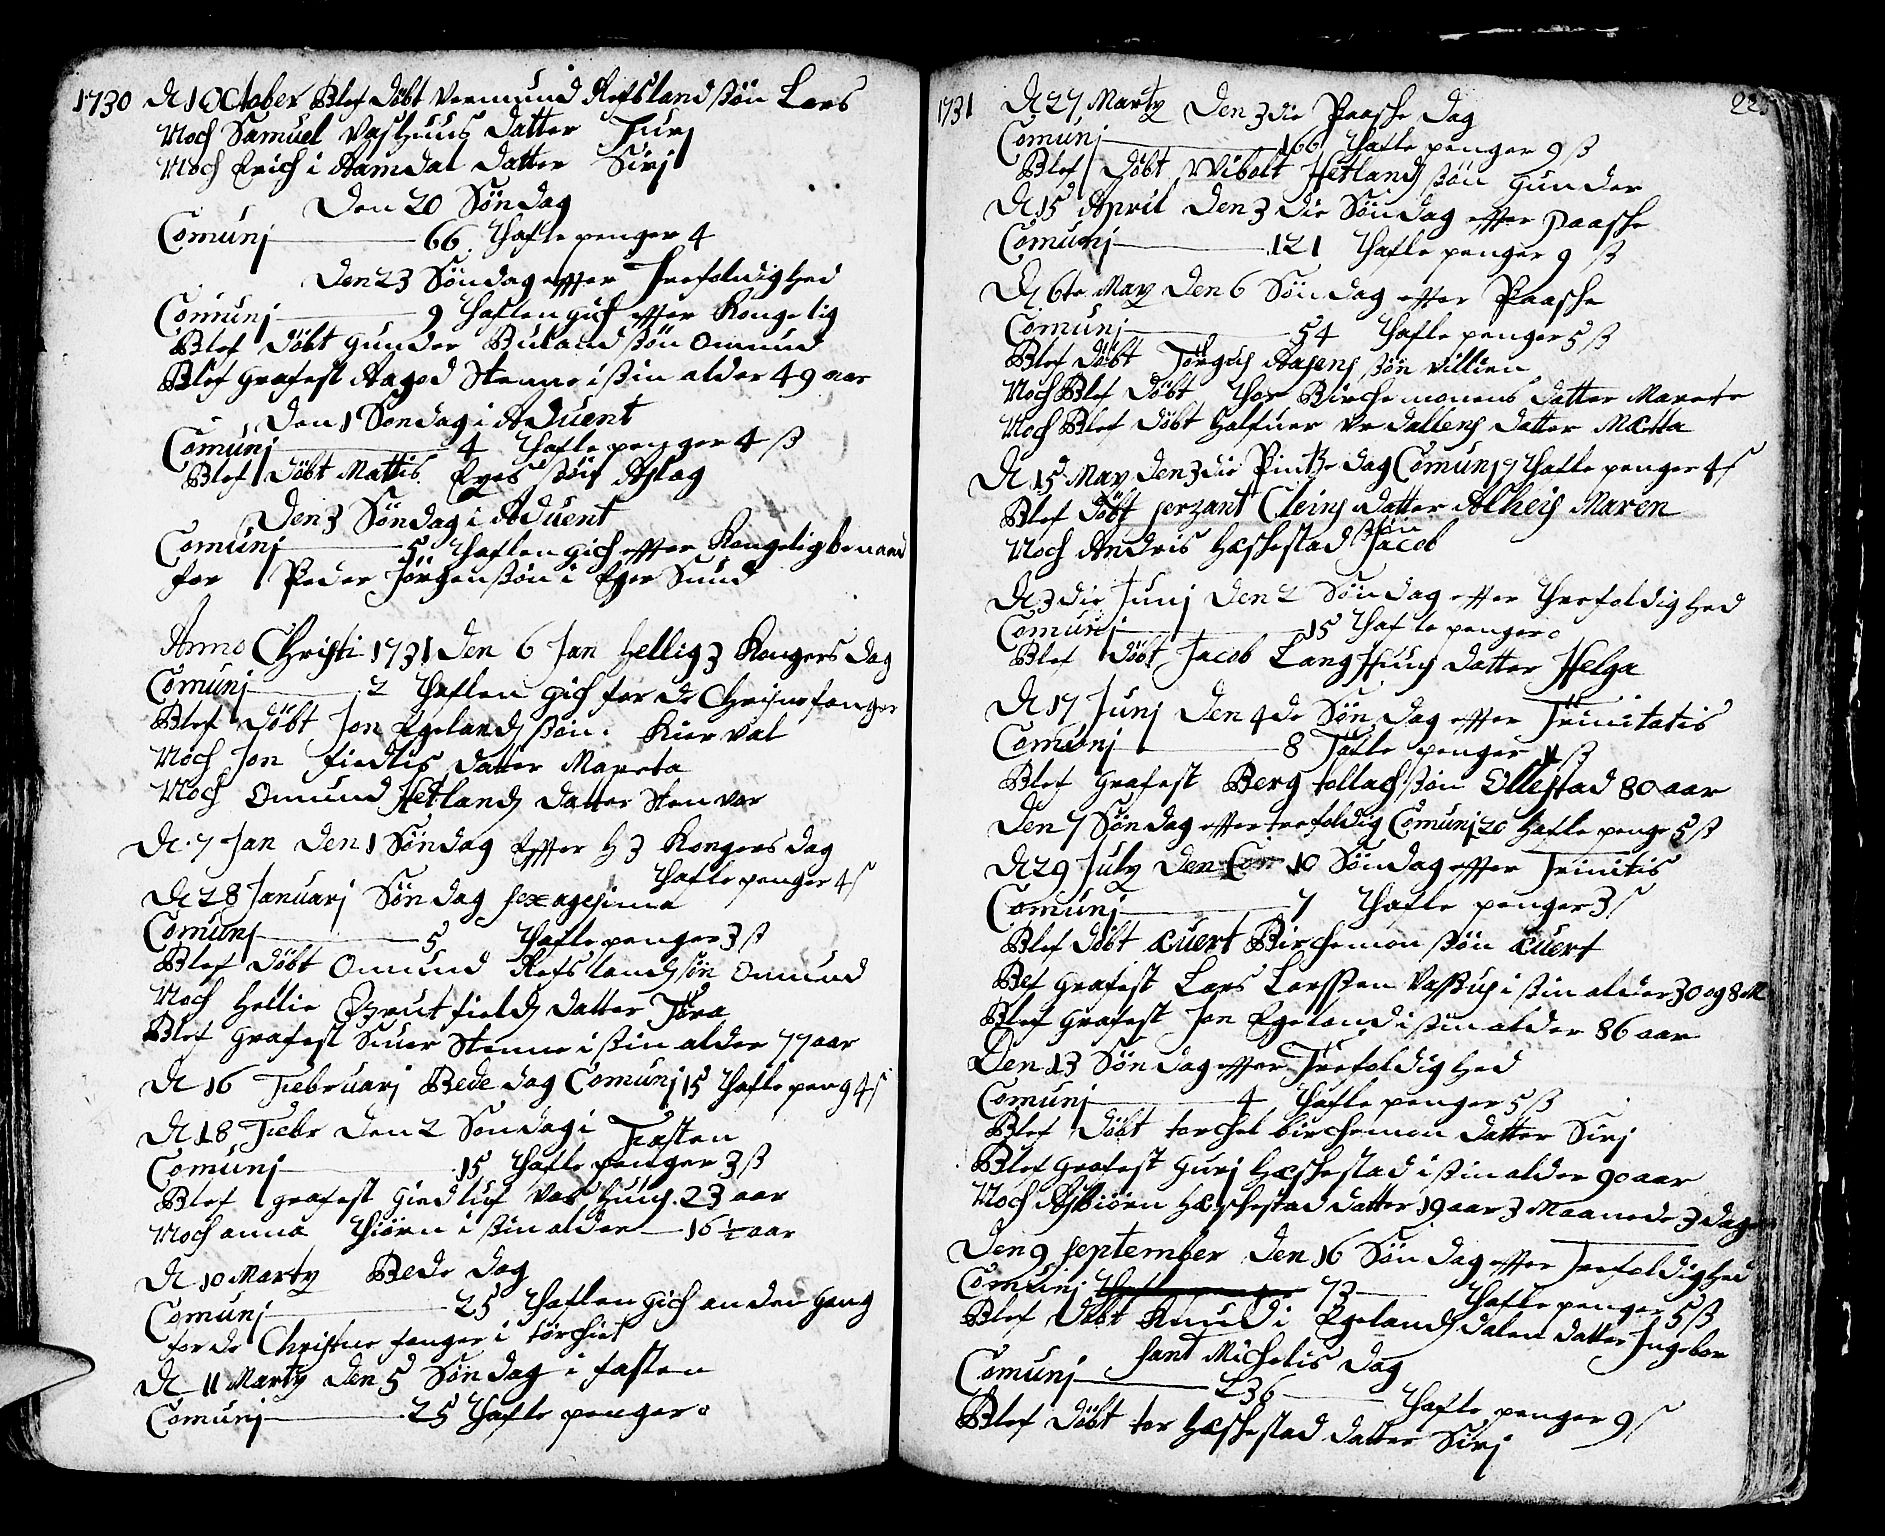 1730 D 1 October Blef døbt Vermund Refsland ßøn Lars
Noch Samuel Vashuus datter Turj
Noch Erich i Aamdal datter Sirj
Den 20 Søndag
Comunj 66 Thafle penger 4
Den 23 Søndag effter Trefoldighed
Comunj 9 Thaflen gich effter Kongelig
Blef døbt Gunder Buland ßøn Omund
Blef grafest Aagod Stenne i ßin alder 49 aar
Den 1 Søndag i Aduent
Comunj 4 Thafle penger 4 ß
Blef døbt Mattis Eyes ßøn Aslag
Den 3 Søndag i Aduent
Comunj 5 Thaflen gich effter Kongelig
for Peder Jørgenßøn i Eger Sund
Anno Christi 1731 Den 6 Jan Hellig 3 Kongers dag
Comunj 2 Thaflen gich for de Christne fanger
Blef døbt Jon Egelands ßøn Kierval
Noch Jon fiedtis datter Mareta
Noch Omund Hetlands datter Stenvor
D. 7 Jan den 1 Søndag Effter H 3 Kongers dag
Thafle penger 4 s
D 28 Januarj Søndag sexagesima
Comunj 5 Thafle penger 3 ß
Blef døbt Omund Refslands søn Omund
Noch Hellie fields datter Tora
Blef grafest Siuer Stenne i ßin alder 77 aar
D 16 Februarj Bede dag Comunj 15 Thafle peng 4 s
D 18 Febr den 2 Søndag i Fasten
Comunj 15 Thafle penger 3 ß
Blef grafest Giedluf Vashuus 23 aar
Noch anna Thiørn i ßin alder 16 ½ aar
D 10 Marty Bede dag
Comunj 25 Thaflen gich anden gang
for de Christne fanger i torchiet
D 11 Marty den 5 Søndag i fasten
Comunj 25 Thafle penger 0
1731 D 27 Marty Den 3die Paasche dag
Comunj 166 Thafle penger 9 ß
Blef døbt Wibolt Hetlands ßøn Gunder
D 15 April den 3die Søndag effter Paasche
Comunj 121 Thafle penger 9 ß
D 6te May den 6 Søndag effter Paasche
Comunj 54 Thafle penger 5 ß
Blef døbt Tørgus Aasens ßøn Villien
Noch Blef døbt Thor Birchemoens datter Marete
Noch Blef døbt Halfuer Ørdallens datter Mætta
D 15 May den 3die Pintze dag Comunj 9 Thafle penger 4 s
Blef døbt serzant Cleins datter Alheis Maren
Noch Andris Hæskestad ßøn Jacob
D 3die Junj den 2 Søndag effter Threfoldighed
Comunj 15 Thafle penger 0
Blef døbt Jacob Langhuus datter Helga
D 17 Junj den 4de Søndag effter Trinitatis
Comunj 8 Tafle penger ß
Blef grafest Berg tollachßøn Ollestad 80 aar
Den 7 Søndag effter trefoldig Comunj 20 Hafle penge 5 ß
D 29 July den 10 Søndag effter Trinitis
Comunj 7 Thafle penger 3 s
Blef døbt Euert Birchemon ßøn Euert
Blef grafest Lars Larssen Vasßus i ßin alder 30 og 8
Blef grafest Jon Egeland i ßin alder 86 aar
Den 13 Søndag effter Trefoldighed
Comunj 4 Thafle penger 5 ß
Blef døbt torchel birchemon datter Sirj
Blef grafest Gurj Hæskestad i ßin alder 90 aar
Noch Asbiørn Hæschestad datter 19 aar 3 Maanede 3 dager
Den 9 september den 16 Søndag effter Trefoldighed
Comunj 73 Thafle penger 5 ß
Blef døbt Knud i Egelandsdalen datter Ingebor
Sant Michelis dag
Comunj 236 Thafle penger 9 s
Blef døbt tor Hæskestad datter Sirj